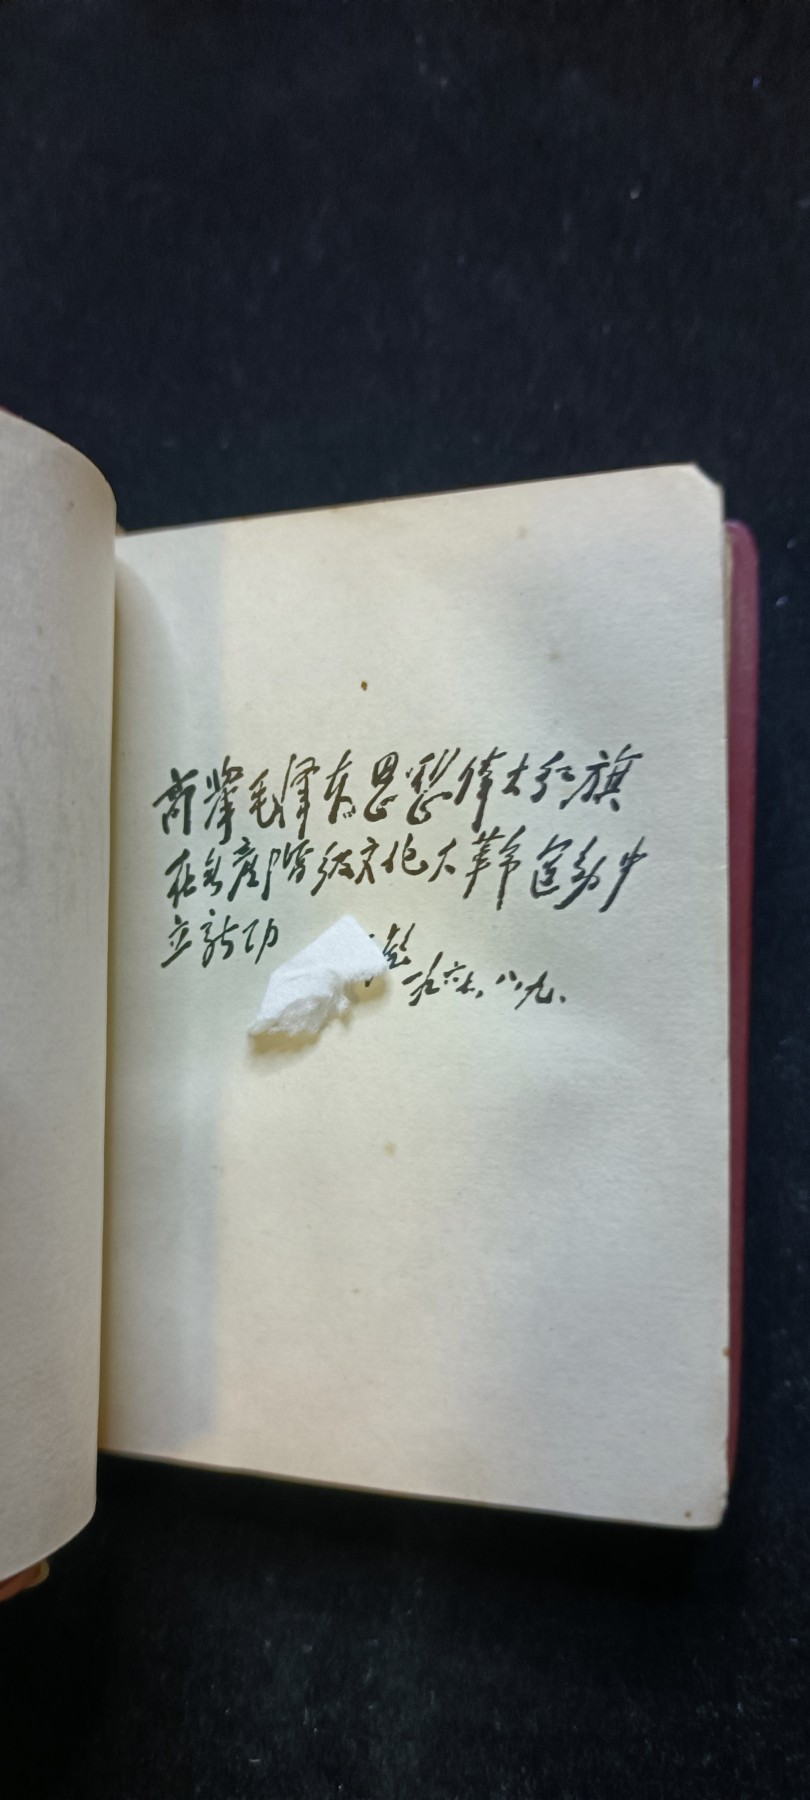 高举毛泽东思想伟大红旗
在无产阶级文化大革命运动中
立新功
一九六七，八，九.